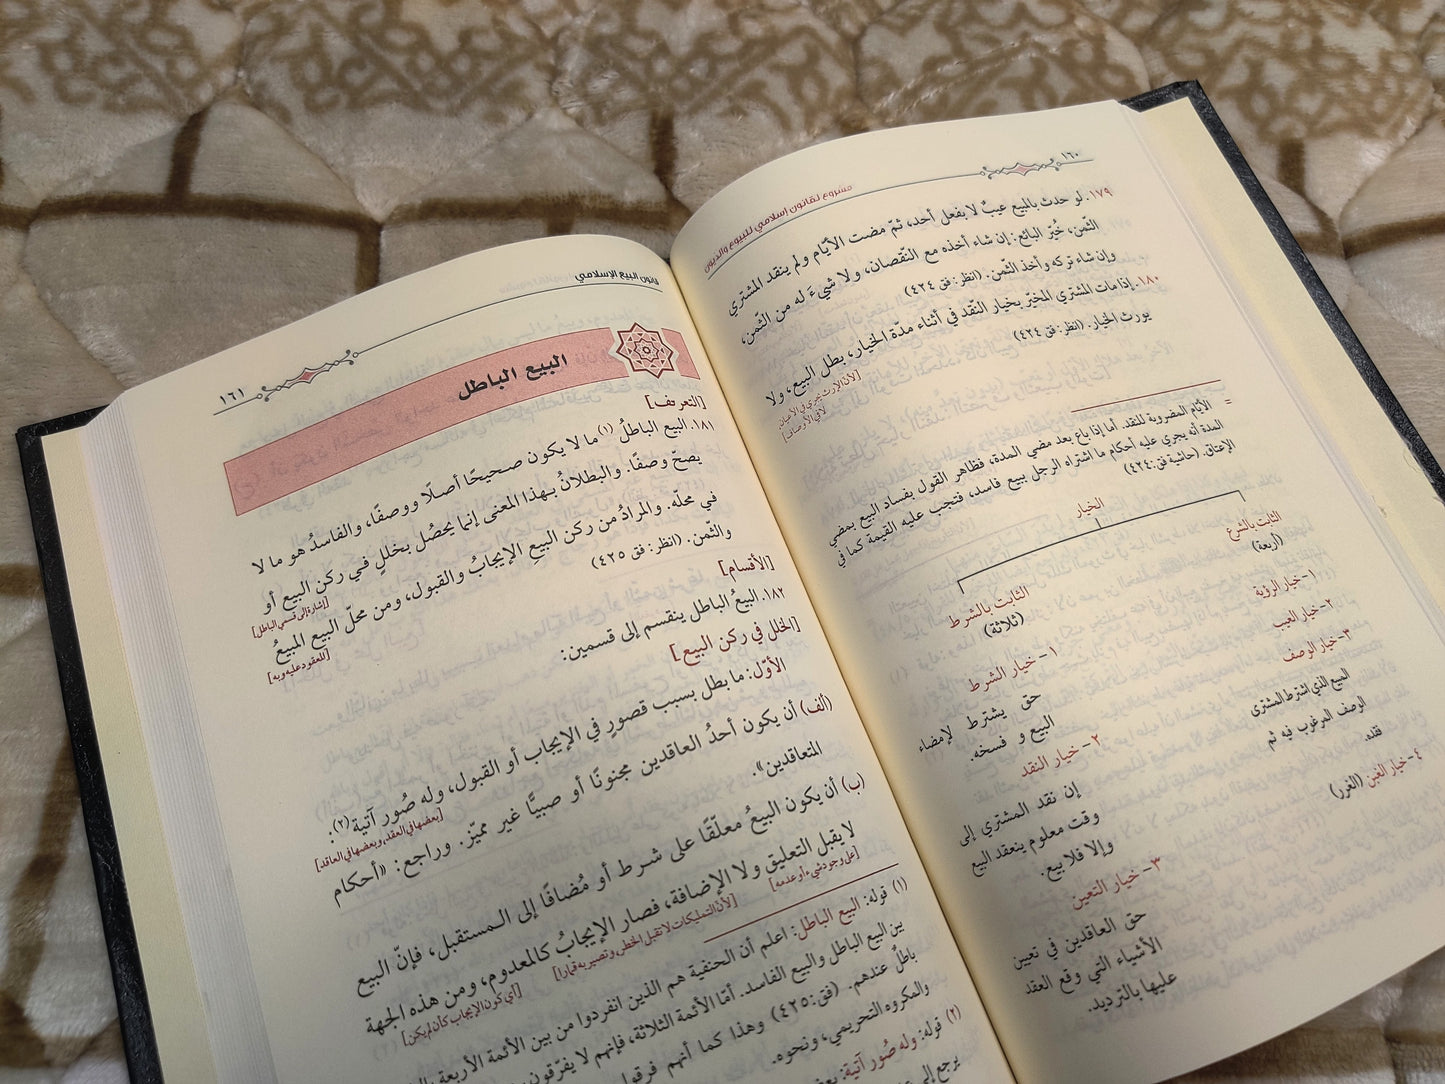 ١٦٠
مشروع لقانون إسلامي للبيوع والديون
١٧٩. لو حدث بالمبيع عيبٌ لا بفعل أحد، ثمّ مضت الأيّام ولم ينقد المشتري
الثّمن، خُيّر البائع: إن شاء أخذه مع النّقصان، ولا شيءَ له من الثّمن،
وإن شاء تركه وأخذ الثّمن. (انظر: فق ٤٢٤)
١٨٠. إذا مات المشتري المخيّر بخيار النّقد في أثناء مدّة الخيار، بطل البيع، ولا
[لأن الإرث يجري في الأعيان
لا في الأوصاف]
يورث الخيار. (انظر: فق ٤٢٤)
= الأيام المضروبة للنقد. أما إذا باع بعد مضي المدة، فظاهر القول بفساد البيع بمضي
المدة أنه يجري عليه أحكام ما اشتراه الرجل ببيع فاسد، فتجب عليه القيمة كما في
الإعتاق. (حاشية فق:٤٢٤)
الخيار
الثابت بالشرع
(أربعة)
١- خيار الرؤية
٢- خيار العيب
٣- خيار الوصف
المبيع الذي اشترط المشتري
الوصف المرغوب فيه ثم
فقده.
٤- خيار الغبن (الغرر)
الثابت بالشرط
(ثلاثة)
١- خيار الشرط
حق يشترط لإمضاء
البيع و فسخه.
٢- خيار النقد
إن نقد المشتري إلى
وقت معلوم ينعقد البيع
وإلا فلا بيع.
٣- خيار التعيين
حق العاقدين في تعيين
الأشياء التي وقع العقد
عليها بالترديد.
قانون البيع الإسلامي
١٦١
البيع الباطل
[التعريف]
١٨١. البيع الباطلُ (١) ما لا يكون صحيحًا أصلًا ووصفًا، والفاسدُ هو ما لا
يصحّ وصفًا. والبطلانُ بهذا المعنى إنما يحصُل بخللٍ في ركن البيع أو
[إشارة إلى قسمي الباطل]
في محلّه. والمرادُ من ركن البيعِ الإيجابُ والقبول، ومن محلّ البيع المبيعُ
[المعقود عليه وبه]
والثّمن. (انظر: فق ٤٢٥)
[الأقسام]
١٨٢. البيعُ الباطل ينقسم إلى قسمين:
[الخلل في ركن البيع]
الأوّل: ما بطل بسبب قصورٍ في الإيجاب أو القبول، وله صُور آتية (٢):
[بعضها في العقد، وبعضها في العاقد]
(ألف) أن يكون أحدُ العاقدين مجنونًا أو صبيًّا غير مميّز. وراجع: «أحكام
المتعاقدين».
(ب) أن يكون البيعُ معلّقًا على شرط أو مُضافًا إلى المستقبل، فإنّ البيع
[على وجود شيء أو عدمه]
لا يقبل التعليق ولا الإضافة، فصار الإيجابُ كالمعدوم، ومن هذه الجهة
[لأن التمليكات لا تقبل الخطر، وتصير به قمارا]
[أي كون الإيجاب كأن لم يكن]
(١) قوله: البيع الباطل: اعلم أن الحنفية هم الذين انفردوا من بين الأئمة الأربعة
بين البيع الباطل والبيع الفاسد. أمّا الأئمة الثلاثة، فإنهم لا يفرّقون
باطلٌ عندهم. (فق:٤٢٥) وهذا كما أنهم فرقوا
والمكروه التحريمي، ونحوه.
(٢) قوله: وله صُور آتية:
يرجع إلى